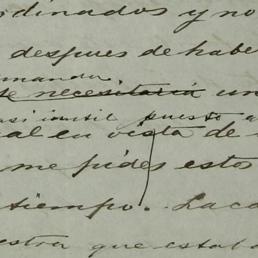 rdinados y no
despues de habe
manda
se necesitaria un
casi inutil puesto a
al en vista de
me pides estos
tiempo. Laca
estra que estab